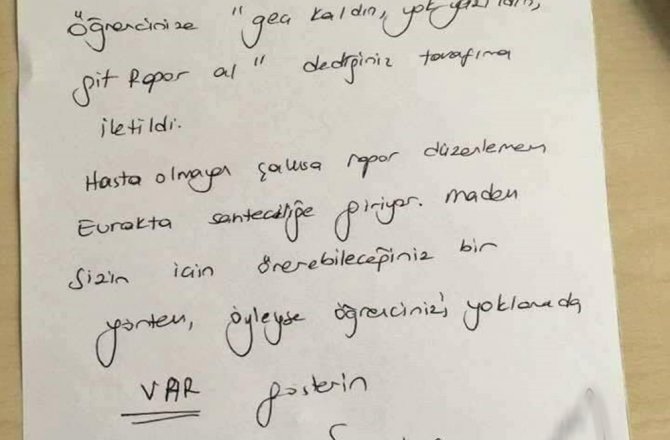 Öğrencinize "geç kaldın, yok yazıldın,
git Rapor al" dediğiniz tarafıma
iletildi.
Hasta olmayan şahısa rapor düzenlemem
Evrakta sahteciliğe giriyor. madem
Sizin için önerebileceğiniz bir
yöntem, öyleyse öğrencinizi yoklamada
VAR gösterin